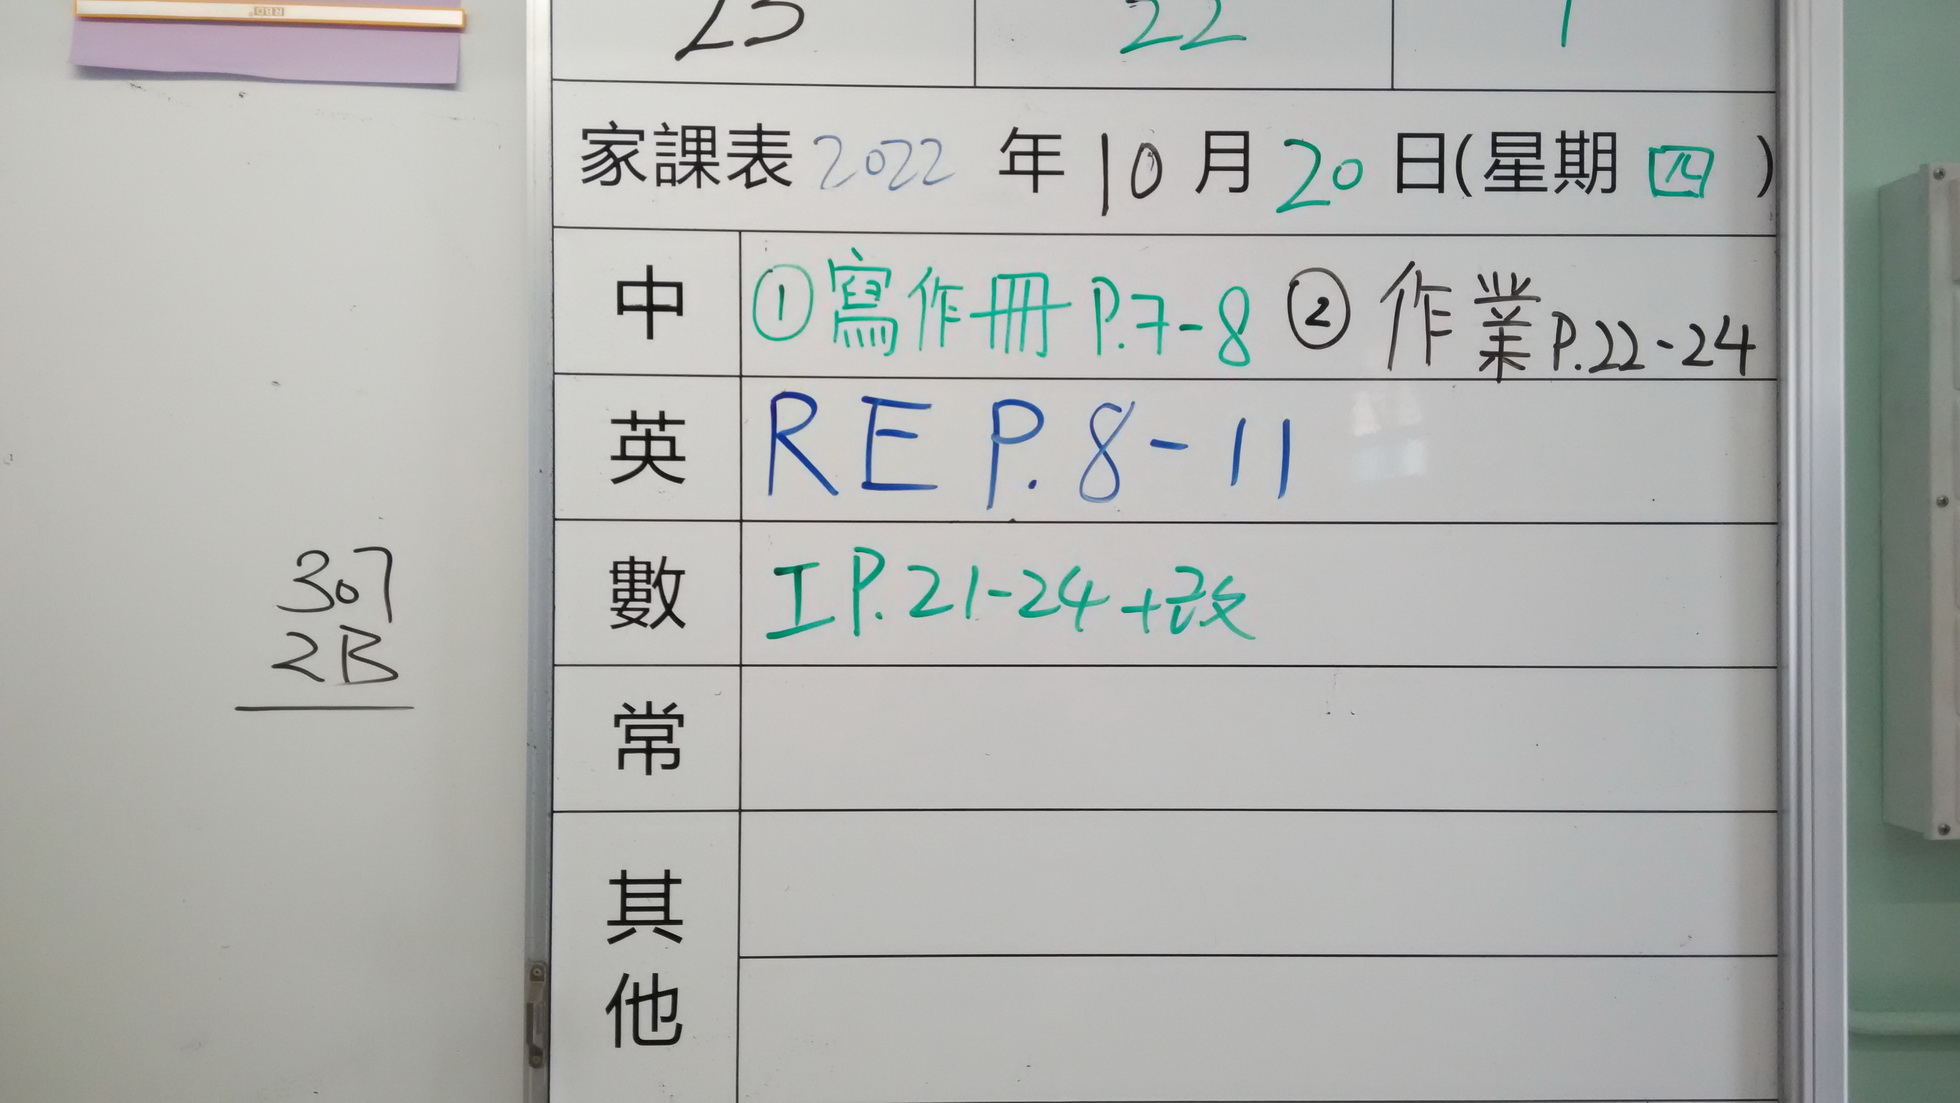 23 22 1
家課表 2022 年 10 月 20 日(星期 四 )
中 ①寫作冊 P.7-8 ② 作業 P.22-24
英 RE P.8-11
數 工 P.21-24 +改
常
其他
307
2B